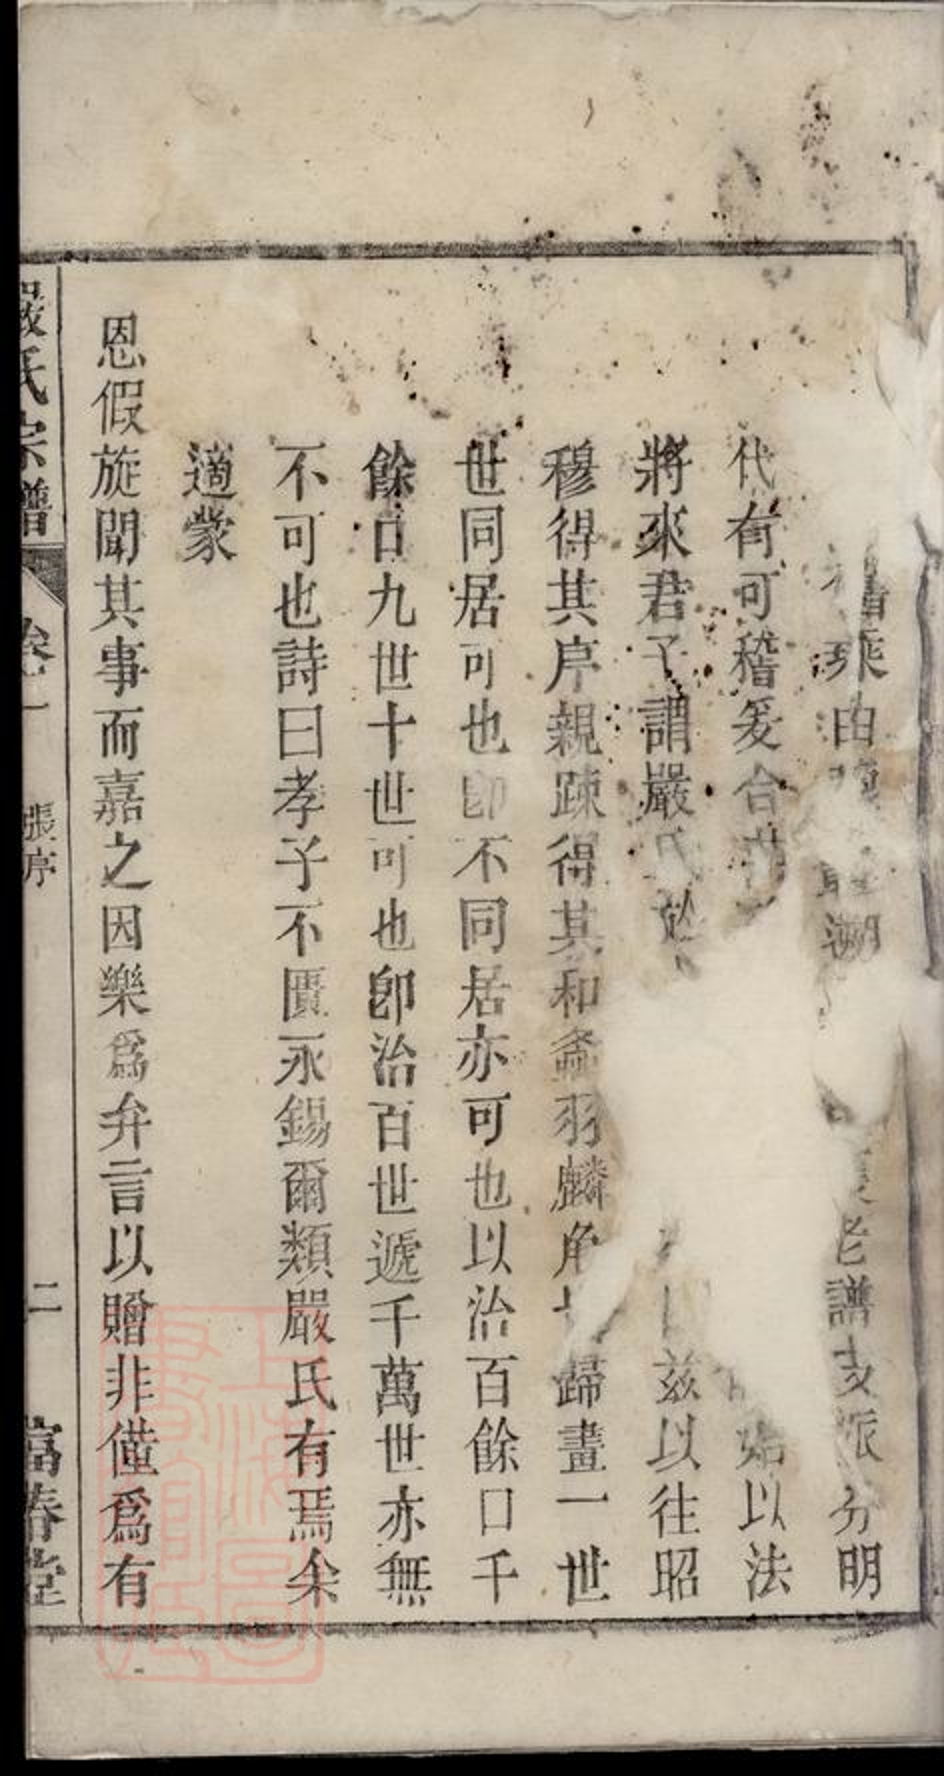 舊乘由溯老譜支派分明
代有可稽爰合始以法
將來君子謂嚴氏以茲以往昭
穆得其序親疎得其和螽羽麟角歸畫一世
世同居可也卽不同居亦可也以治百餘口千
餘口九世十世可也卽治百世遞千萬世亦無
不可也詩曰孝子不匱永錫爾類嚴氏有焉余
適蒙
恩假旋聞其事而嘉之因樂爲弁言以贈非僅爲有
嚴氏宗譜 卷一 張序 二 富春堂
上海圖書館藏